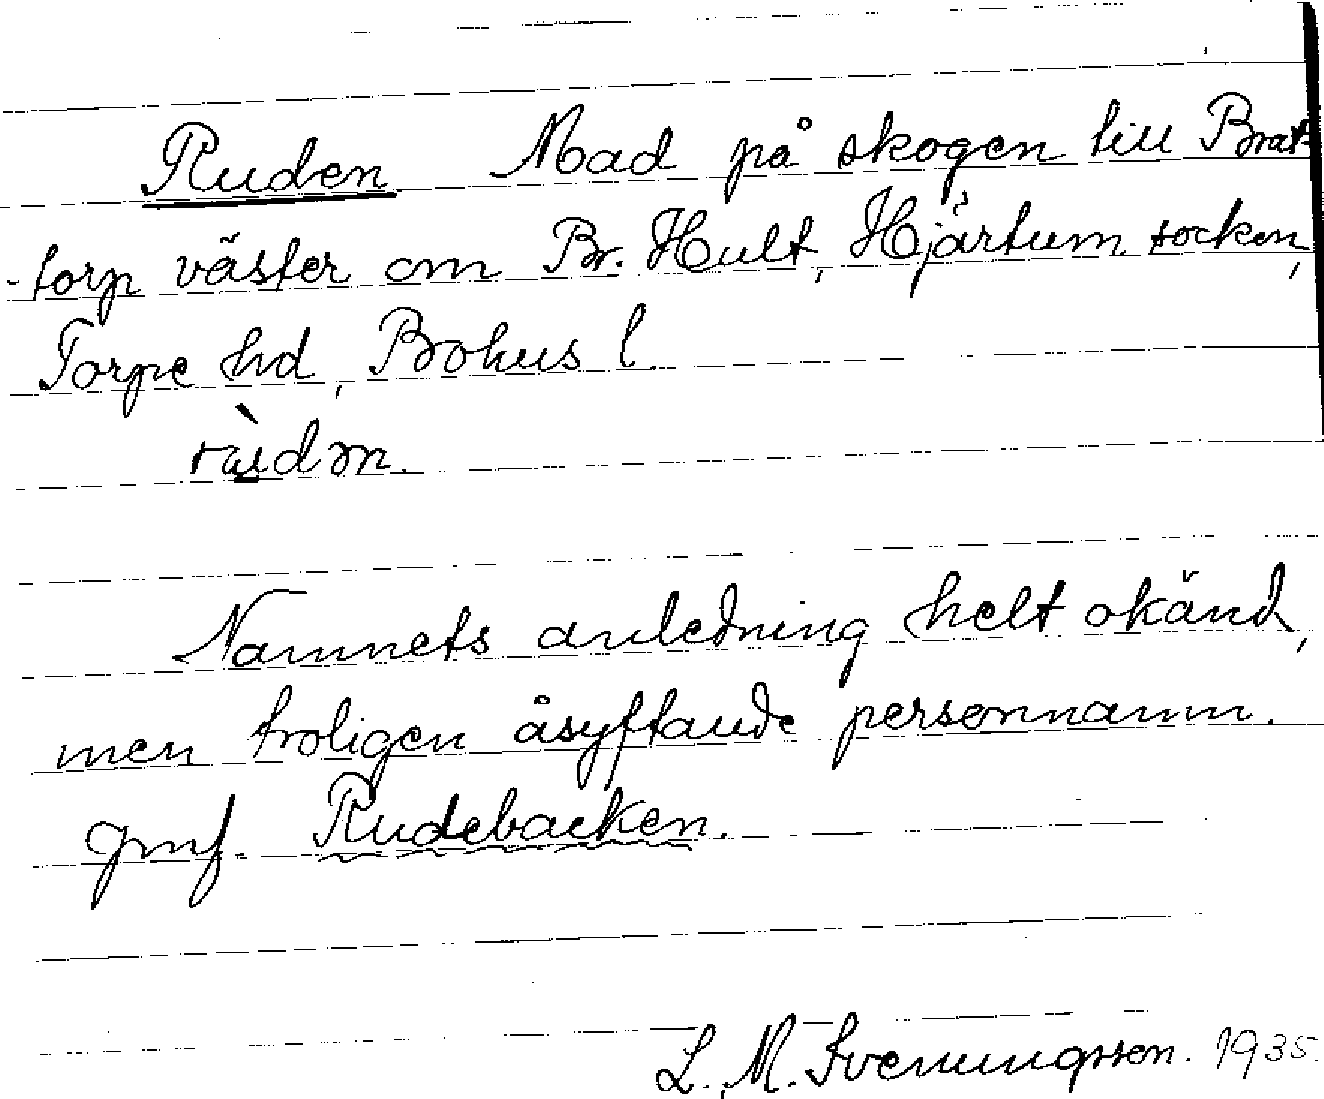 Ruden Mad på skogen till Brat-
-torp väster om Br. Hult, Hjärtum socken,
Torpe hd, Bohus l
Namnets anledning helt okänd,
men troligen åsyftande personnamn.
Jmf. Rudebacken.
L. M. Svenungsson. 1935.